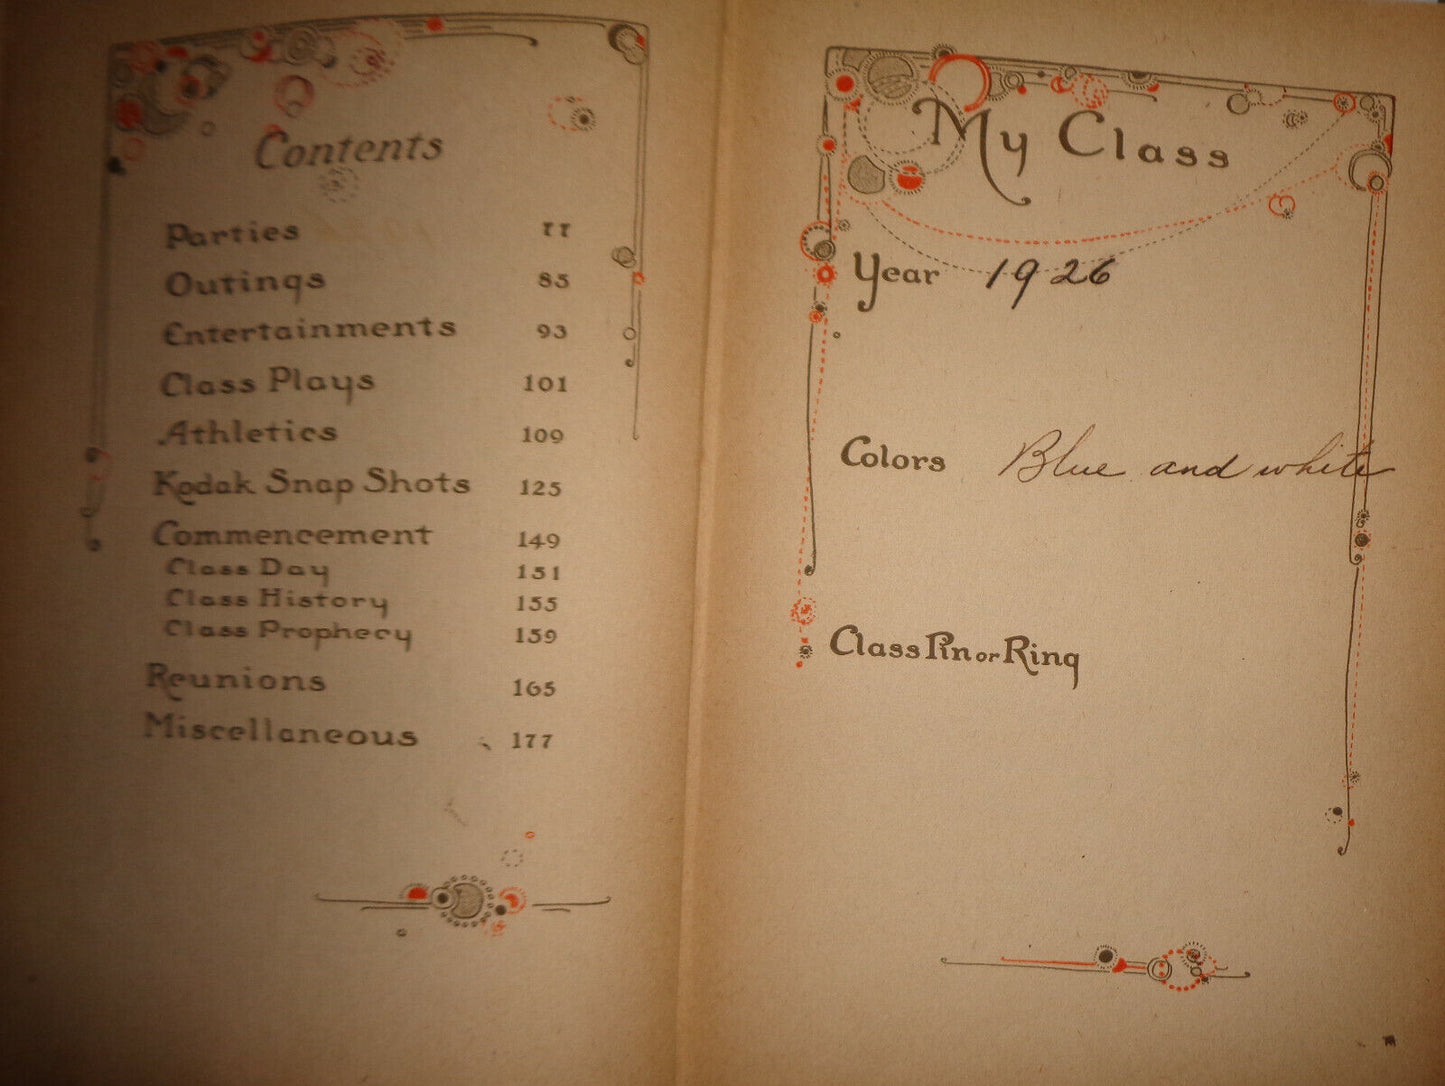 Contents
Parties 77
Outings 85
Entertainments 93
Class Plays 101
Athletics 109
Kodak Snap Shots 125
Commencement 149
Class Day 151
Class History 155
Class Prophecy 159
Reunions 165
Miscellaneous 177
My Class
Year 1926
Colors Blue and white
Class Pin or Ring